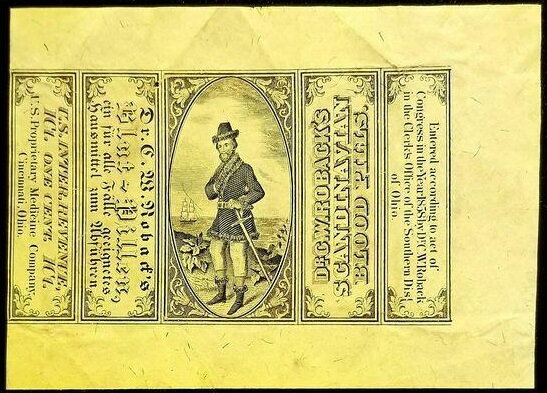 Entered according to act of
Congress in the Year 1858 by Dr. C.W. Roback
in the Clerk's Office of the Southern Dist.
of Ohio.
DR. C.W. ROBACK'S
SCANDINAVIAN
BLOOD PILLS,
Dr. C. W. Roback's
Blut-Pillen,
ein für alle Fälle geeignetes
Hausmittel zum
U.S. INTER. REVENUE.
ONE CENT.
U.S. Proprietary Medicine Company,
Cincinnati, Ohio.